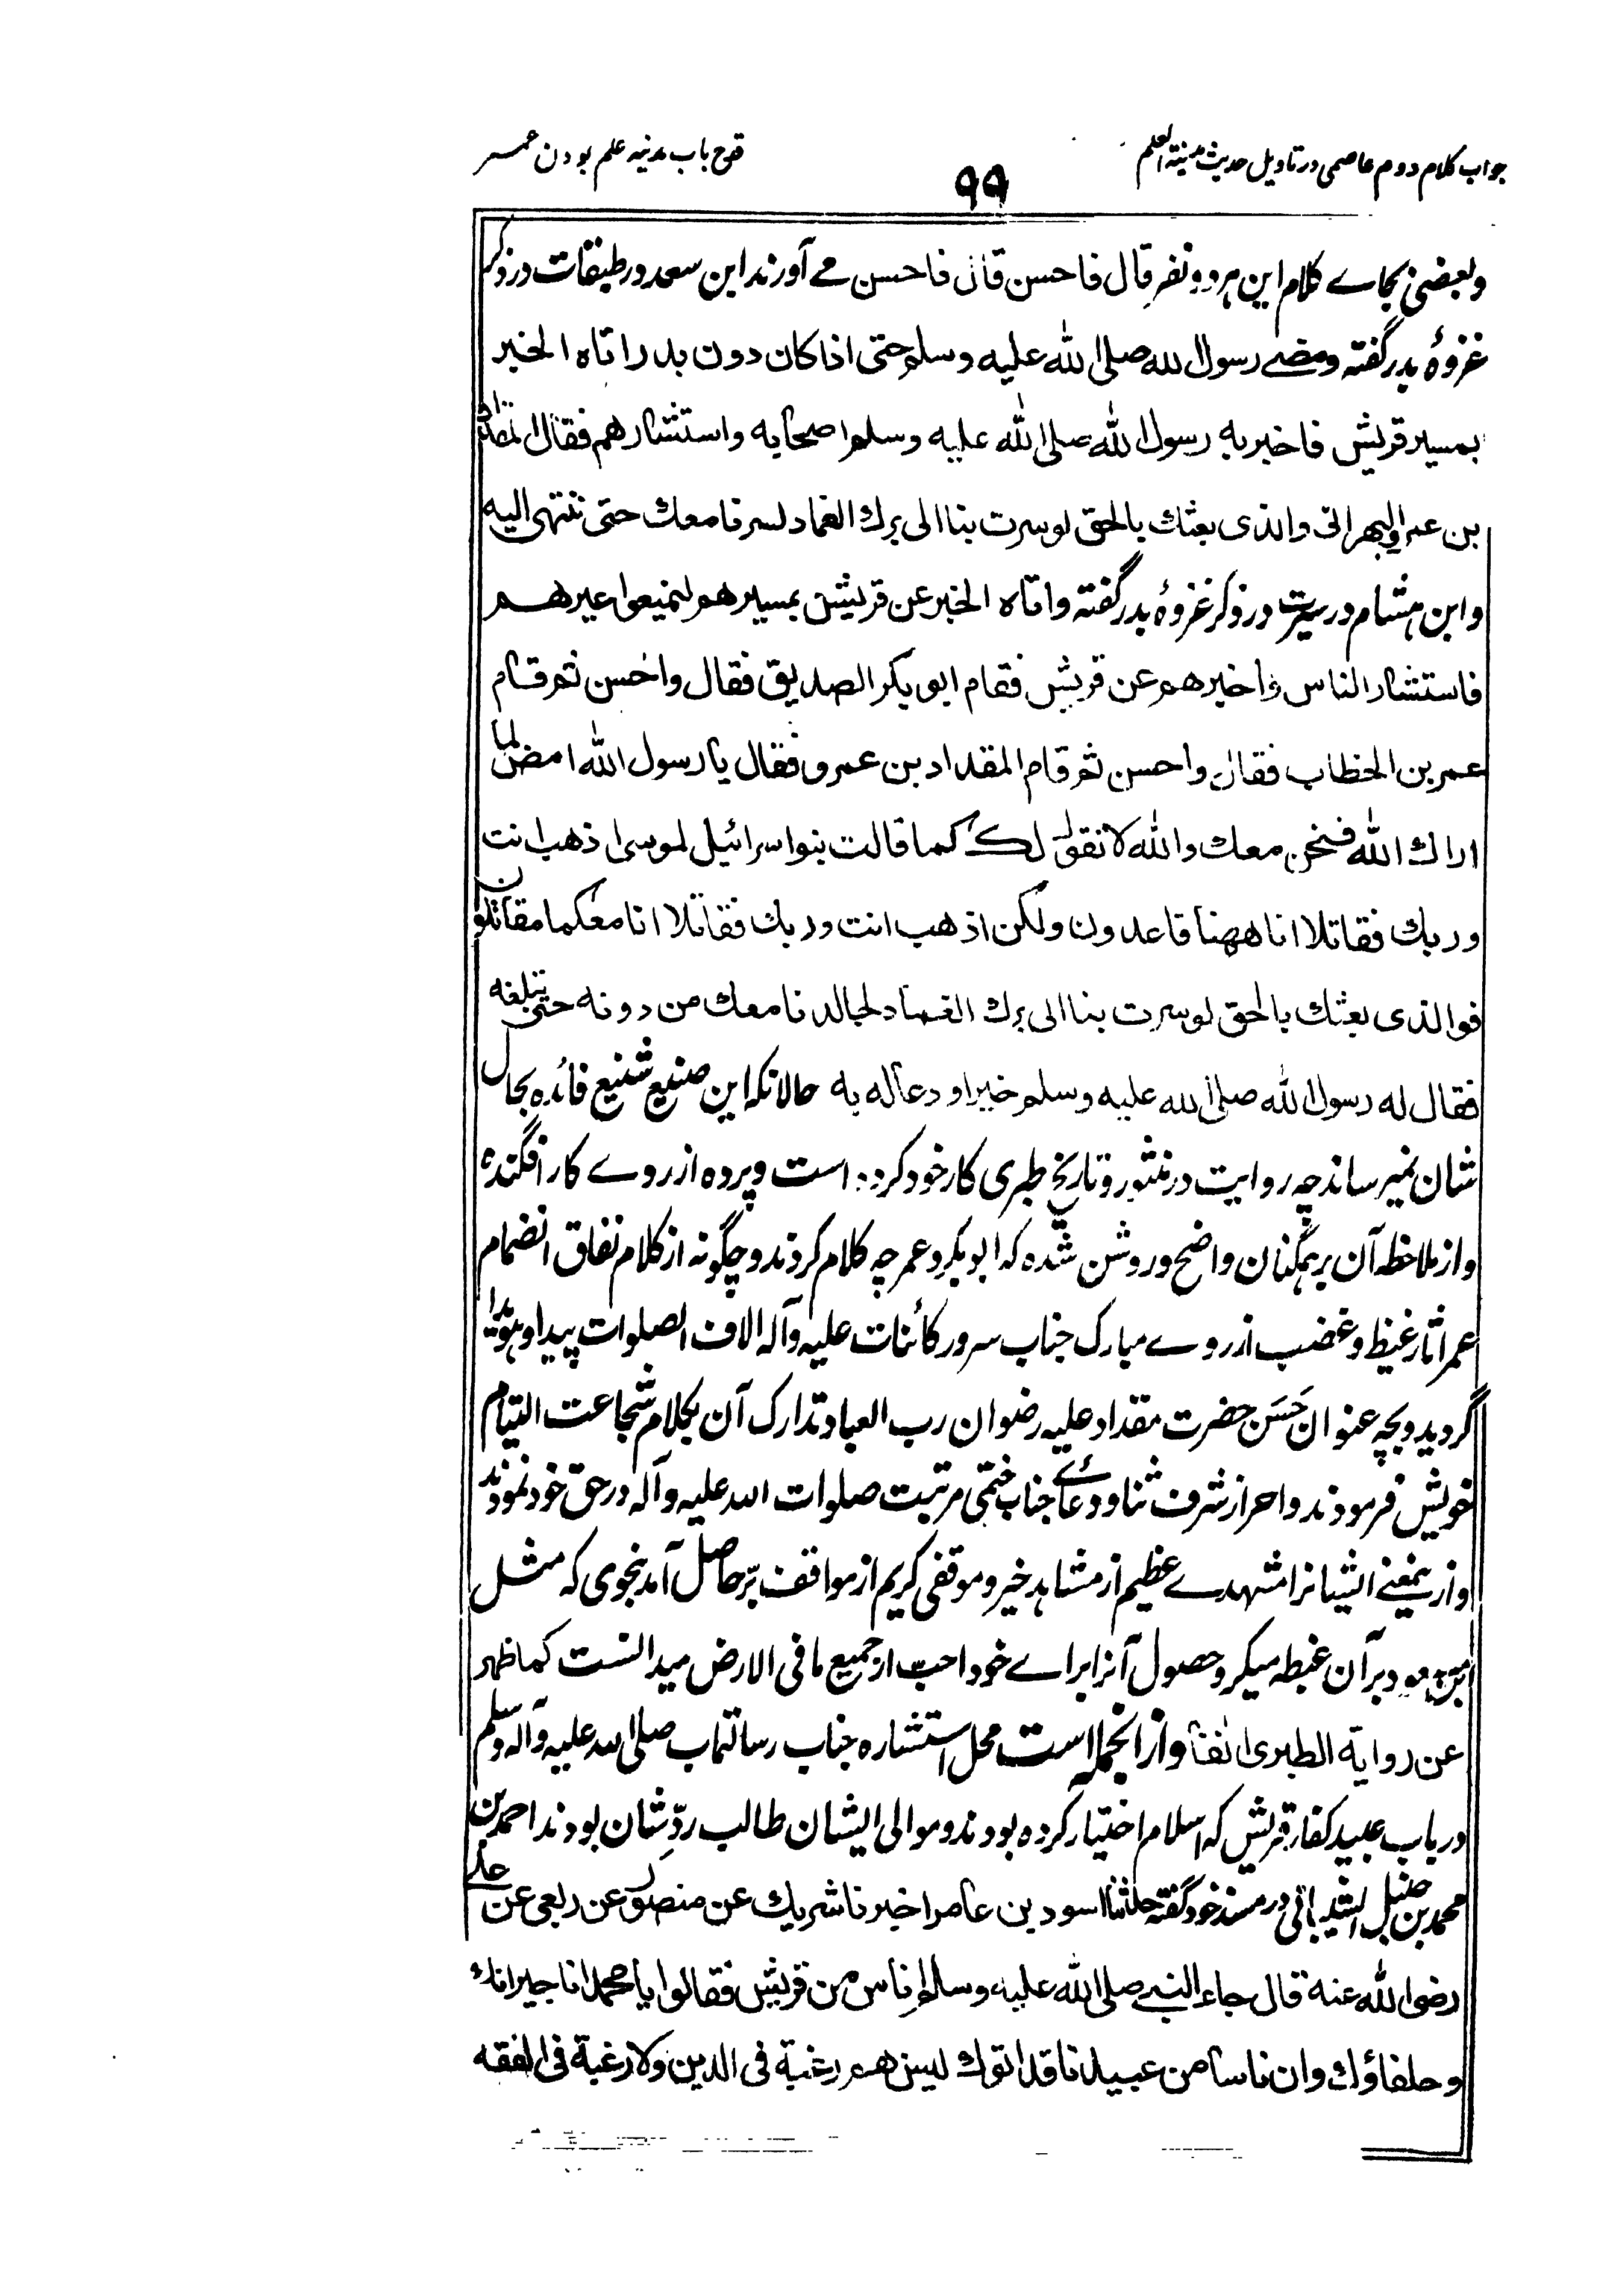 جواب کلام دوم عاصمی در تاویل حدیث مدینة العلم
۹۹
قدح باب مدنیه علم بودن عمر
وبعضی بجاے کلام این هر دو نفر قال فاحسن قال فاحسن مے آورند ابن سعد در طبقات در ذکر
غزوهٔ بدر گفته ومضے رسول الله صلی الله علیه وسلم حتی اذا کان دون بدر اتاه الخبر
بمسیر قریش فاخبر به رسول الله صلی الله علیه وسلم اصحابه واستشارهم فقال المقداد
بن عمرو البهرانی والذی بعثك بالحق لو سرت بنا الی برك الغماد لسرنا معك حتی ننتهی الیه
وابن هشام در سیرت در ذکر غزوهٔ بدر گفته واتاه الخبر عن قریش بمسیرهم لیمنعوا عیرهم
فاستشار الناس واخبرهم عن قریش فقام ابو بکر الصدیق فقال واحسن ثم قام
عمر بن الخطاب فقال واحسن ثم قام المقداد بن عمرو فقال یا رسول الله امض لما
اراك الله فنحن معك والله لا نقول لك کما قالت بنو اسرائیل لموسی اذهب انت
وربك فقاتلا انا ههنا قاعدون ولکن اذهب انت وربك فقاتلا انا معکما مقاتلون
فوالذی بعثك بالحق لو سرت بنا الی برك الغماد لجالدنا معك من دونه حتی تبلغه
فقال له رسول الله صلی الله علیه وسلم خیرا ودعا له به حالانکه این صنیع شنیع فائده بحال
شان نمیرساند چه روایت در منثور و تاریخ طبری کار خود کرده است و پرده از روے کار افگنده
واز ملاحظه آن بر همگنان واضح و روشن شده که ابوبکر و عمر چه کلام کردند و چگونه از کلام نفاق انضمام
عمر آثار غیظ و غضب از روے مبارک جناب سرور کائنات علیه وآله الاف الصلوات پیدا و هویدا
گردید و بچه عنوان حَسَن حضرت مقداد علیه رضوان رب العباد تدارک آن بکلام شجاعت التیام
خویش فرمودند و احراز شرف ثنا و دعاے جناب ختمی مرتبت صلوات الله علیه وآله در حق خود نمودند
وازینمعنے ایشانرا مشهدے عظیم از مشاهد خیر و موقفی کریم از مواقف برّ حاصل آمد بنحوی که مثل
ابن مسعود بر آن غبطه میکرد و حصول آنرا براے خود احب از جمیع ما فی الارض میدانست کما ظهر
عن روایة الطبری انفا وازانجمله است محل استشاره جناب رسالتماب صلی الله علیه وآله وسلم
درباب عبید کفار قریش که اسلام اختیار کرده بودند و موالی ایشان طالب ردّ شان بودند احمد بن
محمد بن حنبل الشیبانی در مسند خود گفته حدثنا اسود بن عامر اخبرنا شریك عن منصور عن ربعی عن علی
رضی الله عنه قال جاء النبی صلی الله علیه وسلم اناس من قریش فقالوا یا محمد انا جیرانك
وحلفاؤك وان ناسا من عبیدنا قد اتوك لیس هم رغبة فی الدین ولا رغبة فی الفقه